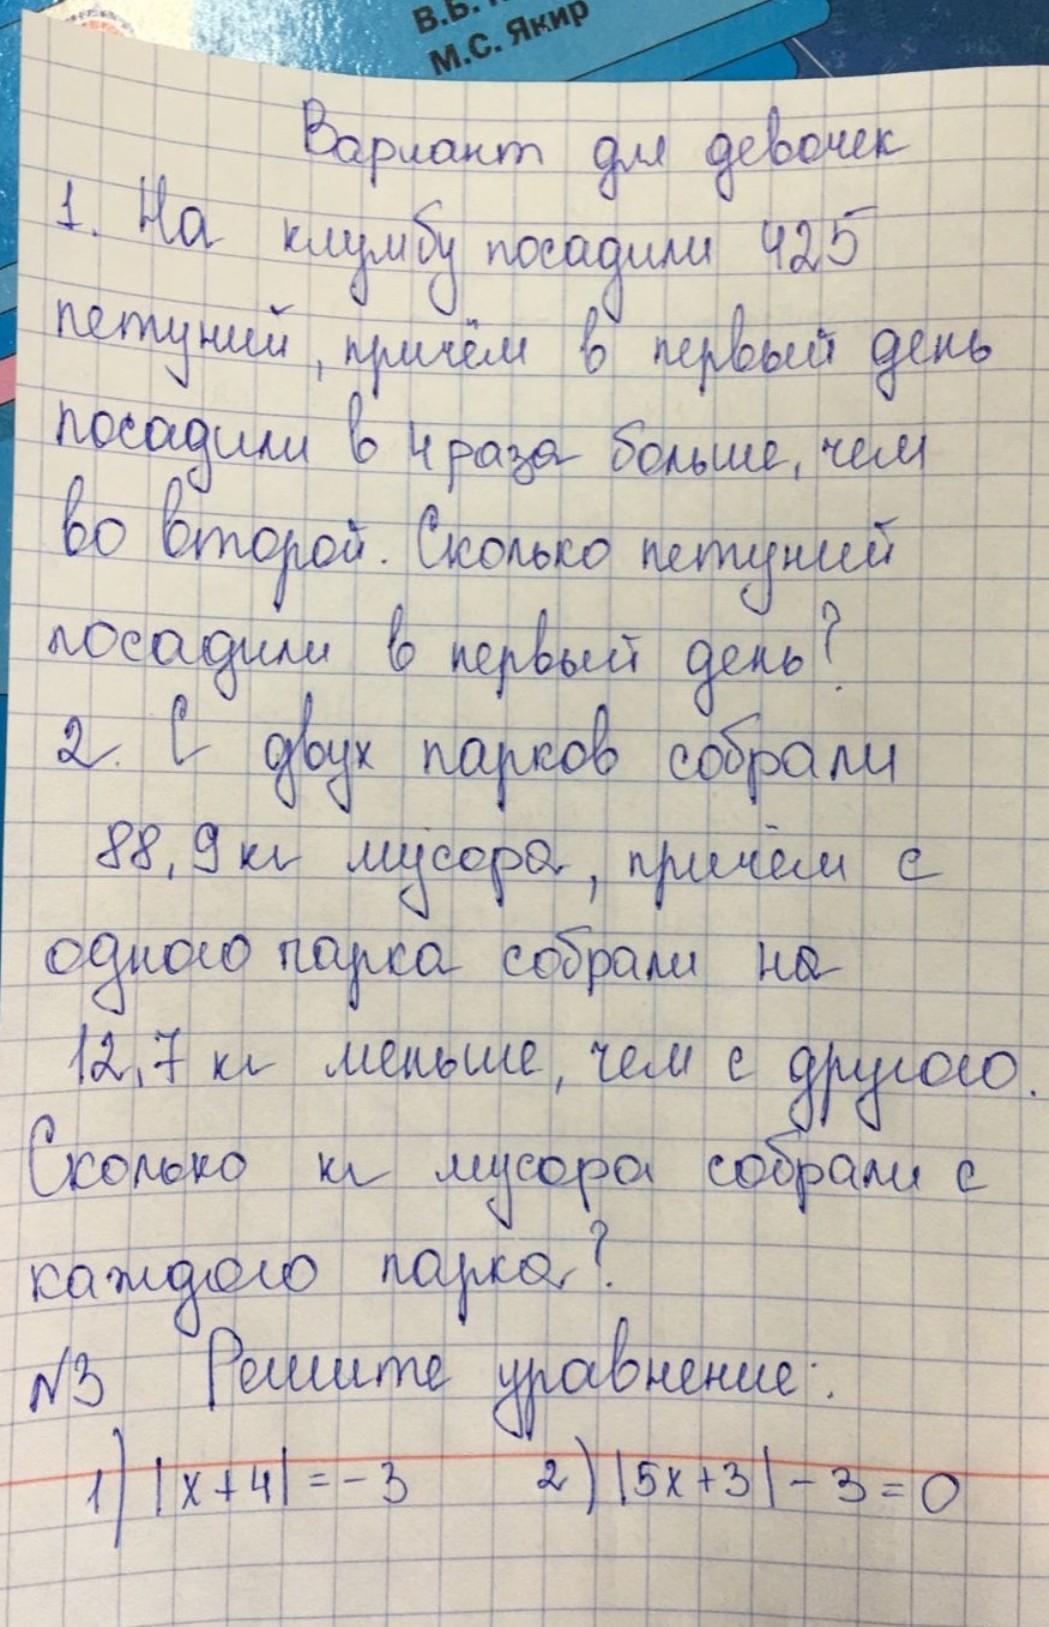 В.Б.
М.С. Якир
Вариант для девочек
1. На клумбу посадили 425
петуний, причём в первый день
посадили в 4 раза больше, чем
во второй. Сколько петуний
посадили в первый день?
2. С двух парков собрали
88,9 кг мусора, причём с
одного парка собрали на
12,7 кг меньше, чем с другого.
Сколько кг мусора собрали с
каждого парка?
№3 Решите уравнение:
1) |x+4| = -3 2) |5x+3| - 3 = 0